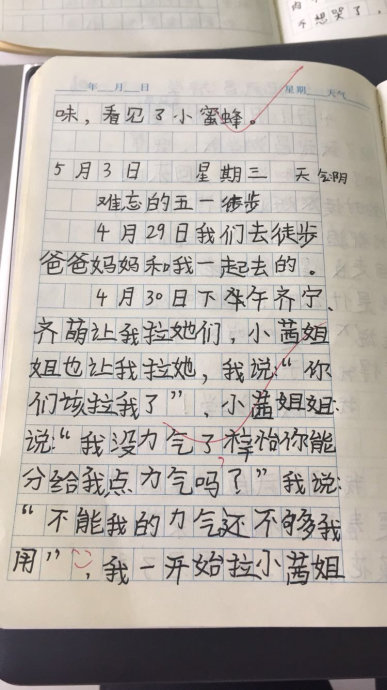 不想哭了,
年 月 日 星期 天气
味，看见了小蜜蜂。
5月3日 星期三 天气阴
难忘的五一徒步
4月29日我们去徒步
爸爸妈妈和我一起去的。
4月30日下午齐宁、
齐萌让我拉她们，小茜姐
姐也让我拉她，我说：“你
们该拉我了”，小茜姐姐：
说：“我没力气了梓怡你能
分给我点力气吗？”我说：
“不能我的力气还不够我
用”，我一开始拉小茜姐